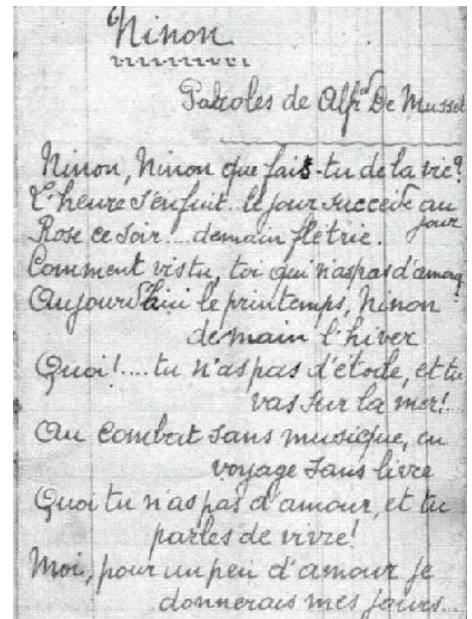 Ninon
Paroles de Alfred De Musset
Ninon, Ninon que fais-tu de la vie?
L'heure s'enfuit.. le jour succède au
jour
Rose ce soir.... demain flétrie.
Comment vis tu, toi qui n'as pas d'amour?
Aujourd'hui le printemps, Ninon
demain l'hiver
Quoi!.... tu n'as pas d'étoile, et tu
vas sur la mer!..
Au combat sans musique, en
voyage sans livre
Quoi tu n'as pas d'amour, et tu
parles de vivre!
Moi, pour un peu d'amour je
donnerais mes jours...